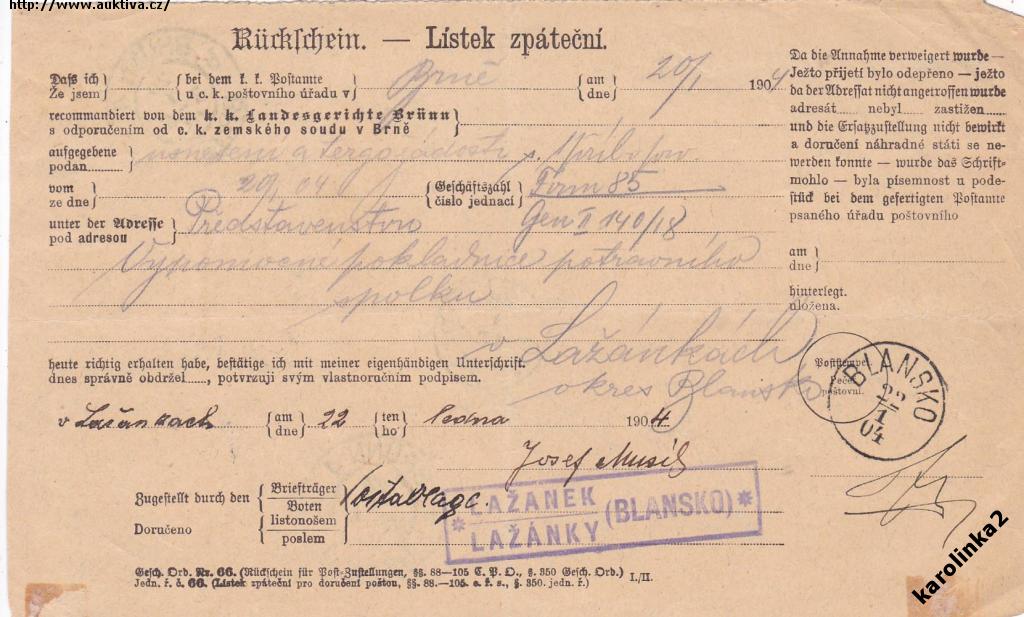 http://www.auktiva.cz/
Rückschein. — Lístek zpáteční.
Daß ich
Že jsem
bei dem k. k. Postamte
u c. k. poštovního úřadu v
Brně
am
dne
20/1 1904
recommandiert von dem k. k. Landesgerichte Brünn
s odporučením od c. k. zemského soudu v Brně
aufgegebene
podan
usnesení a
vom
ze dne
20/1 04
Geschäftszahl
číslo jednací
Firm 85
Gen II 140/18
unter der Adresse
pod adresou
Představenstvo
Výpomocné pokladnice potravního
spolku
v Lažánkách
okres Blansko
heute richtig erhalten habe, bestätige ich mit meiner eigenhändigen Unterschrift.
dnes správně obdržel....., potvrzuji svým vlastnoručním podpisem.
v Lažankach
am
dne
22
ten
ho
ledna
1904
Josef Musil
Zugestellt durch den
Doručeno
Briefträger
Boten
listonošem
poslem
LAŽANEK
LAŽÁNKY
(BLANSKO)
Gesch. Ord. Nr. 66. (Rückschein für Post-Zustellungen, §§. 88—105 C. P. O., §. 350 Gesch. Ord.)
Jedn. ř. č. 66. (Lístek zpáteční pro doručení poštou, §§. 88—105. c. ř. s., §. 350. jedn. ř.)
I./II.
Da die Annahme verweigert wurde —
Ježto přijetí bylo odepřeno — ježto
da der Adressat nicht angetroffen wurde
adresát ..... nebyl ..... zastižen .....
und die Ersatzzustellung nicht bewirkt
a doručení náhradné státi se ne-
werden konnte — wurde das Schrift-
mohlo — byla písemnost u pode-
stück bei dem gefertigten Postamte
psaného úřadu poštovního
am
dne
hinterlegt.
uložena.
Poststempel
Pečeť
poštovní.
BLANSKO
22
1
04
karolinka2